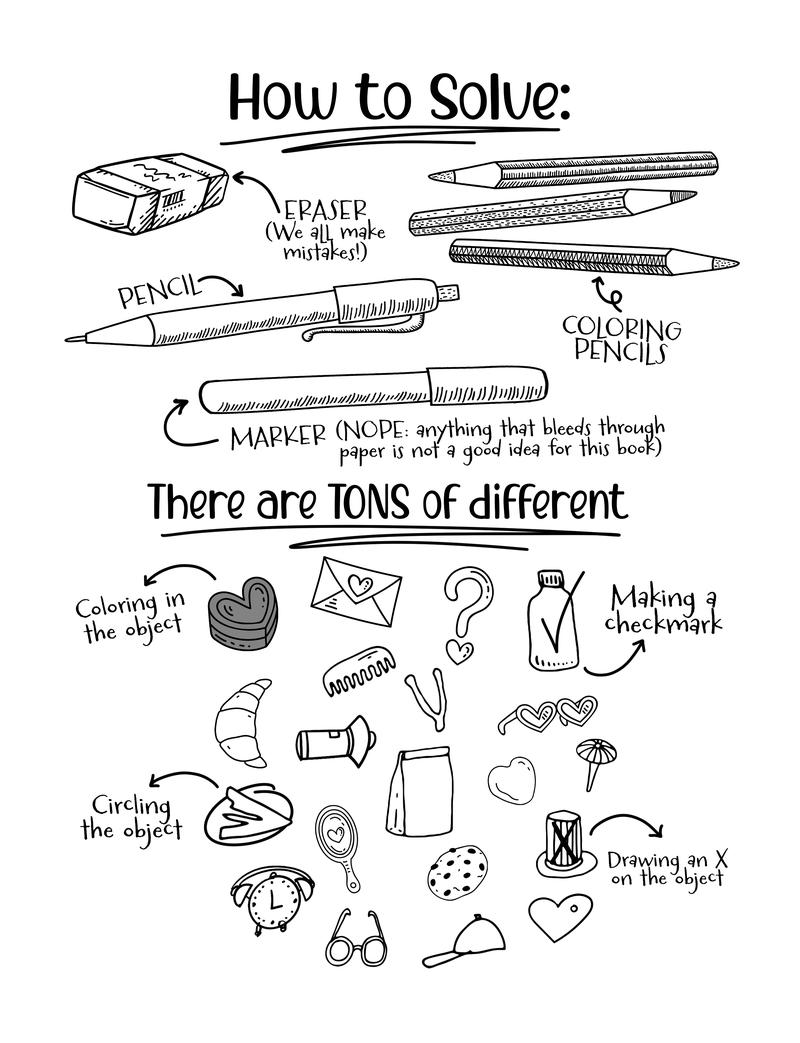 How to Solve:
ERASER
(We all make
mistakes!)
PENCIL
COLORING
PENCILS
MARKER (NOPE: anything that bleeds through
paper is not a good idea for this book)
There are TONS of different
Coloring in
the object
Making a
checkmark
Circling
the object
Drawing an X
on the object